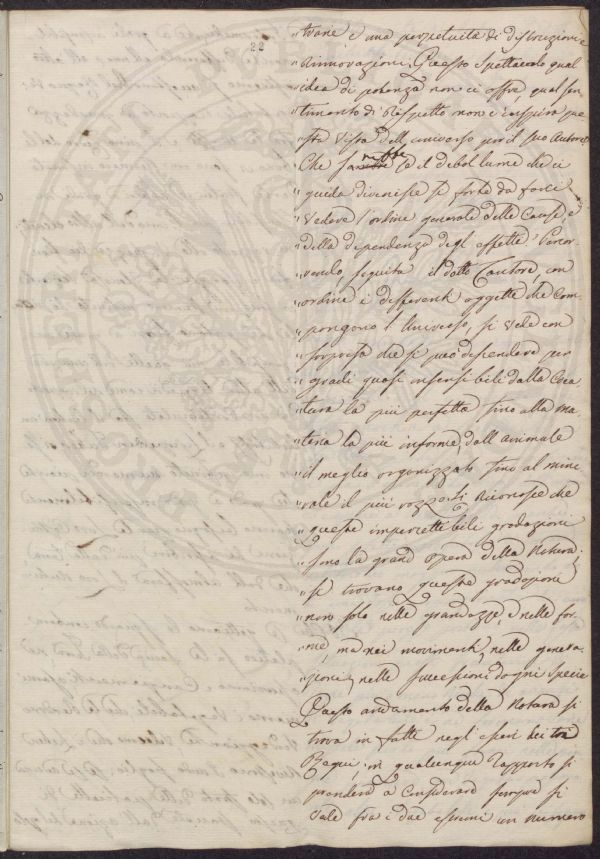 22
"trarie e una perpetuità di distruzioni e
"Rinnovazioni. Questo Spettacolo qual
"idea di potenza non ci offre, qual sen-
"timento di Rispetto non c'inspira que
"sta vista dell'universo per il suo Autore,
"Che sarebbe se il debol lume che ci
"guida divenisse sì forte da farci
"Vedere l'ordine generale delle Cause e
"della dipendenza degl'effetti? Percor-
"rendo, seguita il dotto Autore, con
"ordine i differenti oggetti che Com-
"pongono l'Universo, si Vede con
"sorpresa che si può discendere per
"gradi quasi insensibili dalla Crea
"tura la più perfetta fino alla ma-
"teria la più informe, dall'animale
"il meglio organizzato fino al mine
"rale il più rozzo. Si Riconosce che
"queste impercettibili gradazioni
"sono la grand'opera della Natura;
"si trovano queste gradazioni
"non solo nelle grandezze, e nelle for-
"me, ma nei movimenti, nelle genera-
"zioni, nelle successioni d'ogni specie
Questo andamento della Natura si
trova in fatti negli esseri dei tre
Regni, in qualunque Rapporto si
prenderà a Considerare sempre si
Vede fra i due estremi un numero